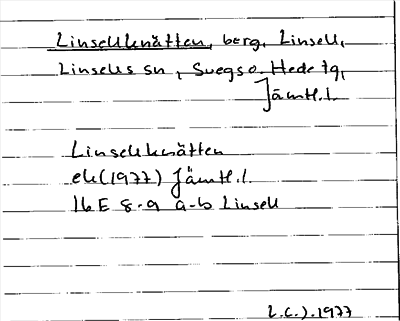 Linsellknätten, berg, Linsell,
Linsells sn, Svegs o. Hede tg,
Jämtl.l.
Linsellknätten
ek (1977) Jämtl.l.
16E 8-9 a-b Linsell
L.C.J. 1977